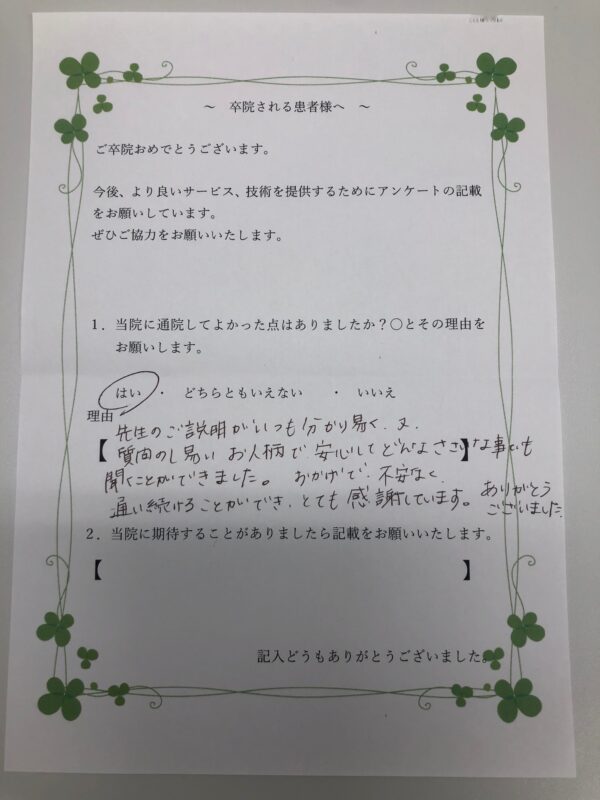 ～ 卒院される患者様へ ～
ご卒院おめでとうございます。
今後、より良いサービス、技術を提供するためにアンケートの記載
をお願いしています。
ぜひご協力をお願いいたします。
1．当院に通院してよかった点はありましたか？○とその理由を
お願いします。
はい ・ どちらともいえない ・ いいえ
理由
先生のご説明がいつも分かり易く、又、
【質問のし易いお人柄で、安心してどんなささいな事でも】
聞くことができました。 おかげで、不安なく、
通い続けることができ、とても感謝しています。 ありがとう
ございました。
2．当院に期待することがありましたら記載をお願いいたします。
【 】
記入どうもありがとうございました。